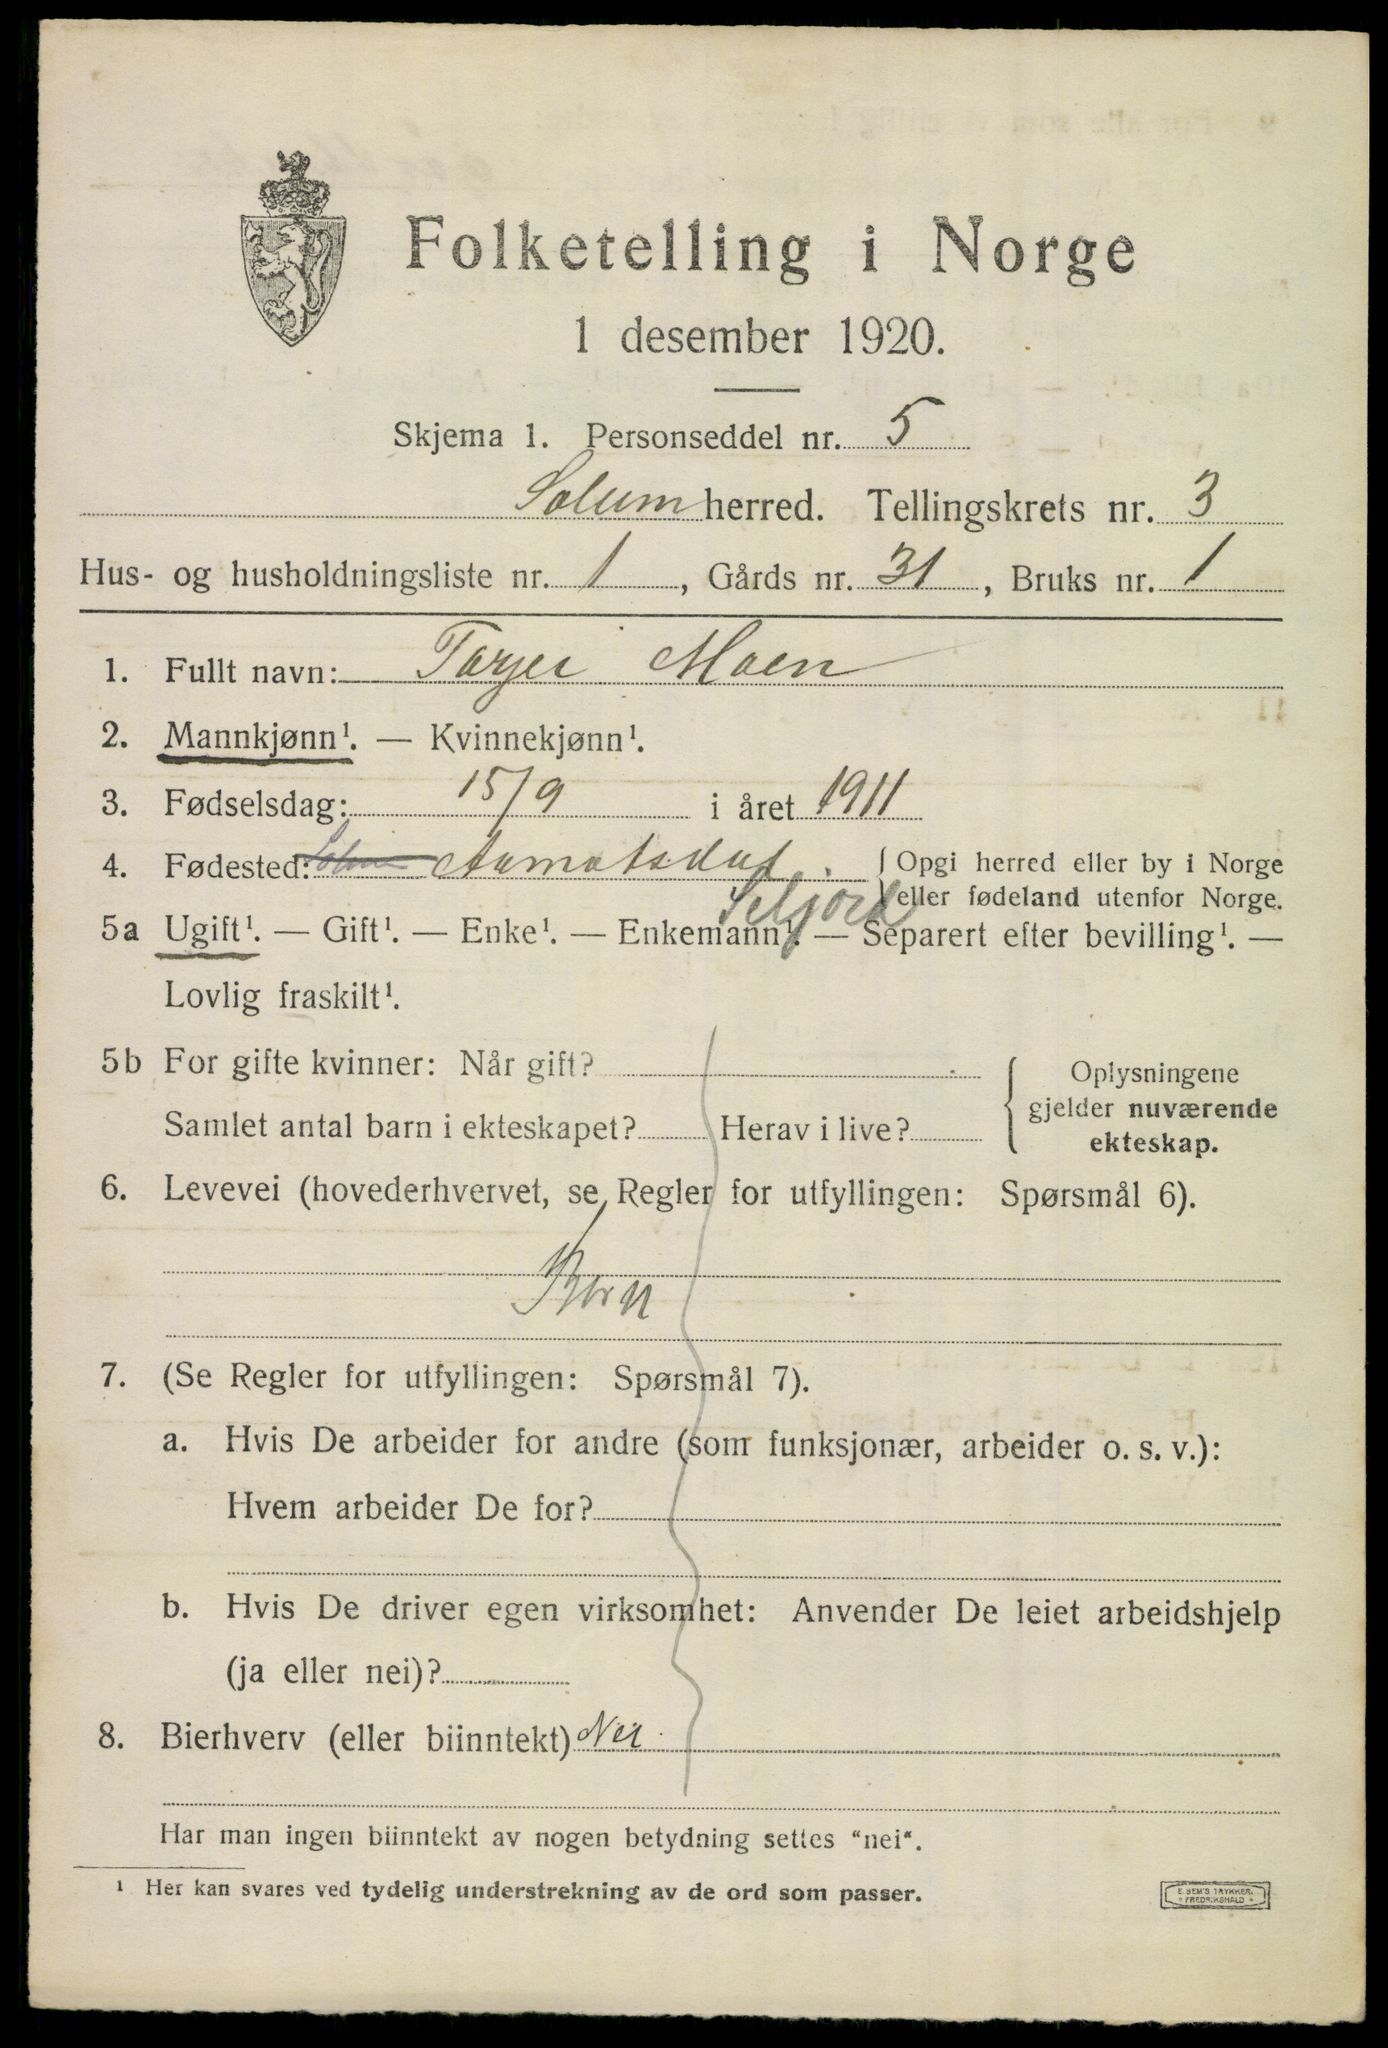 Folketelling i Norge
1 desember 1920.
Skjema 1. Personseddel nr. 5
Solum herred. Tellingskrets nr. 3
Hus- og husholdningsliste nr. 1, Gårds nr. 31, Bruks nr. 1
1. Fullt navn: Tarjei Moen
2. Mannkjønn¹. — Kvinnekjønn¹.
3. Fødselsdag: 15/9 i året 1911
4. Fødested: Solum Aamotsdal. { Opgi herred eller by i Norge
eller fødeland utenfor Norge.
Seljord
5a Ugift¹. — Gift¹. — Enke¹. — Enkemann¹. — Separert efter bevilling¹. —
Lovlig fraskilt¹.
5b For gifte kvinner: Når gift?
Samlet antal barn i ekteskapet? Herav i live?
{ Oplysningene
gjelder nuværende
ekteskap.
6. Levevei (hovederhvervet, se Regler for utfyllingen: Spørsmål 6).
Barn
7. (Se Regler for utfyllingen: Spørsmål 7).
a. Hvis De arbeider for andre (som funksjonær, arbeider o. s. v.):
Hvem arbeider De for?
b. Hvis De driver egen virksomhet: Anvender De leiet arbeidshjelp
(ja eller nei)?
8. Bierhverv (eller biinntekt) Nei
Har man ingen biinntekt av nogen betydning settes "nei".
¹ Her kan svares ved tydelig understrekning av de ord som passer.
E. SEM'S TRYKKERI
FREDRIKSHALD